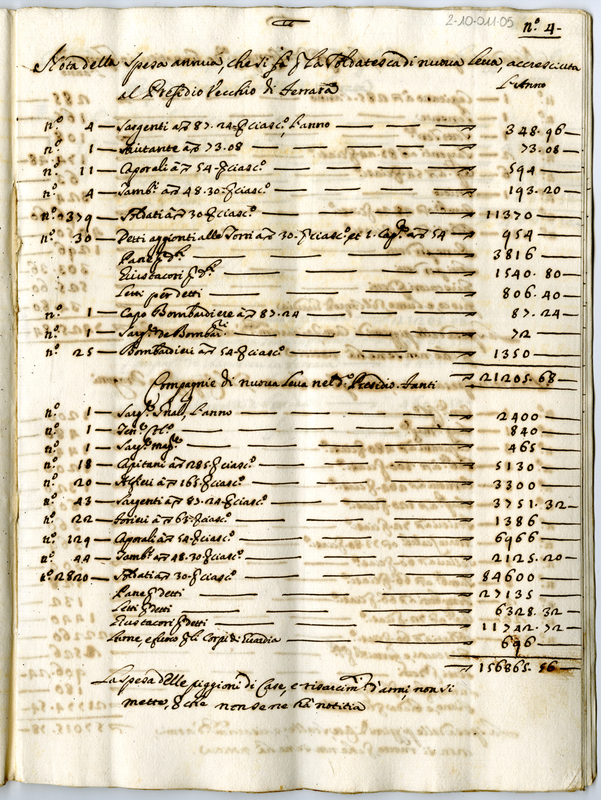 2-10-011-05
n.º 4-
Nota della Spesa annua, che si fa p la Soldatesca di nuova Leva, accresciuta
al Presidio Vecchio di Ferrara
L'Anno
nº 4 — Sargenti a 87.24 p ciascº, l'anno — 348.96
nº 1 — Aiutante a 73.08 — 73.08
nº 11 — Caporali a 54 p ciascº — 594
nº 4 — Tambⁱ a 48.30 p ciascº — 193.20
nº 379 — Soldati a 30 p ciascº — 11370
nº 30 — Detti aggionti alle Torri a 30 p ciascº et 1 Capˡᵉ a 54 — 954
Pane p dⁱ — 3816
p dⁱ — 1540.80
Letti per detti — 806.40
nº 1 — Capo Bombardiere a 87.24 — 87.24
nº 1 — Sargᵉ de Bombʳⁱ — 72
nº 25 — Bombardieri a 54 p ciascº — 1350
21205.68
Compagnie di nuova Leva nel dº Presidio. Fanti
nº 1 — Sargᵉ Gnäl, l'anno — 2400
nº 1 — Tenᵉ — 840
nº 1 — Sargᵉ magʳᵉ — 465
nº 18 — Capitani a 285 p ciascº — 5130
nº 20 — Alfieri a 165 p ciascº — 3300
nº 43 — Sargenti a 87.24 p ciascº — 3751.32
nº 22 — Forieri a 63 p ciascº — 1386
nº 129 — Caporali a 54 p ciascº — 6966
nº 44 — Tambⁱ a 48.30 p ciascº — 2125.20
nº 2820 — Soldati a 30 p ciascº — 84600
Pane p detti — 27135
Letti p detti — 6328.32
p detti — 11742.72
Lume, e fuoco p li Corpi di Guardia — 696
156865.56
La spesa delle piggioni di Case, e risarcimᵗⁱ d'armi, non si
mette, p che non se ne hà notitia